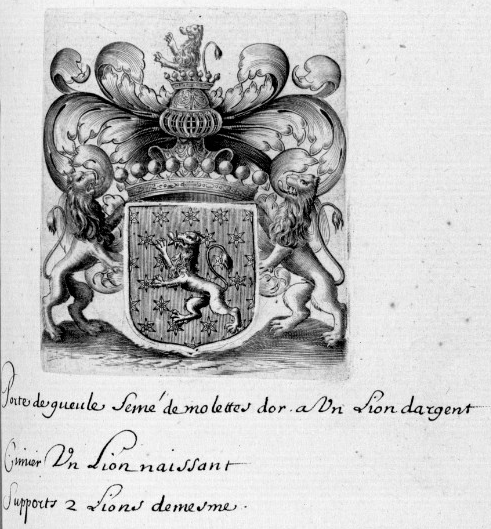 Porte de gueule Semé de molettes dor. a Un Lion dargent
Cimier Un Lion naissant
Supports 2 Lions demesme.